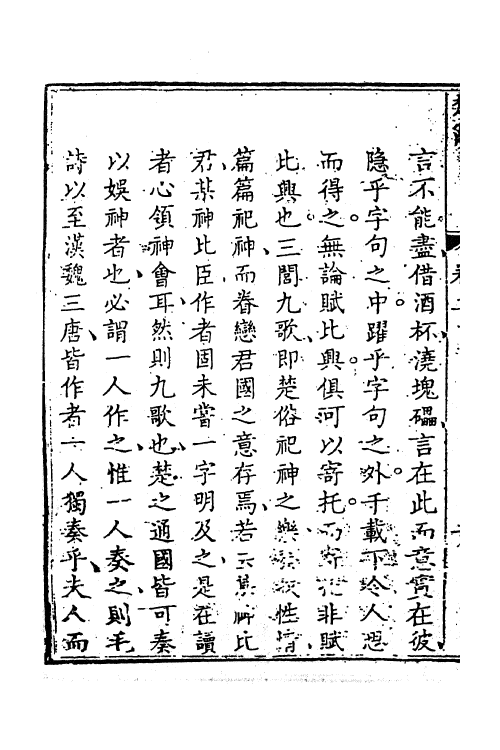 言不能盡借酒杯澆塊磊言在此而意實在彼
隱乎字句之中躍乎字句之外千載下令人思
而得之無論賦比興俱可以寄托而寄托非賦
比興也三閭九歌即楚俗祀神之樂性情
篇篇祀神而眷戀君國之意存焉若云某神比
君某神比臣作者固未嘗一字明及之是在讀
者心領神會耳然則九歌也楚之通國皆可奏
以娛神者也必謂一人作之惟一人奏之則毛
詩以至漢魏三唐皆作者一人獨奏乎夫人而